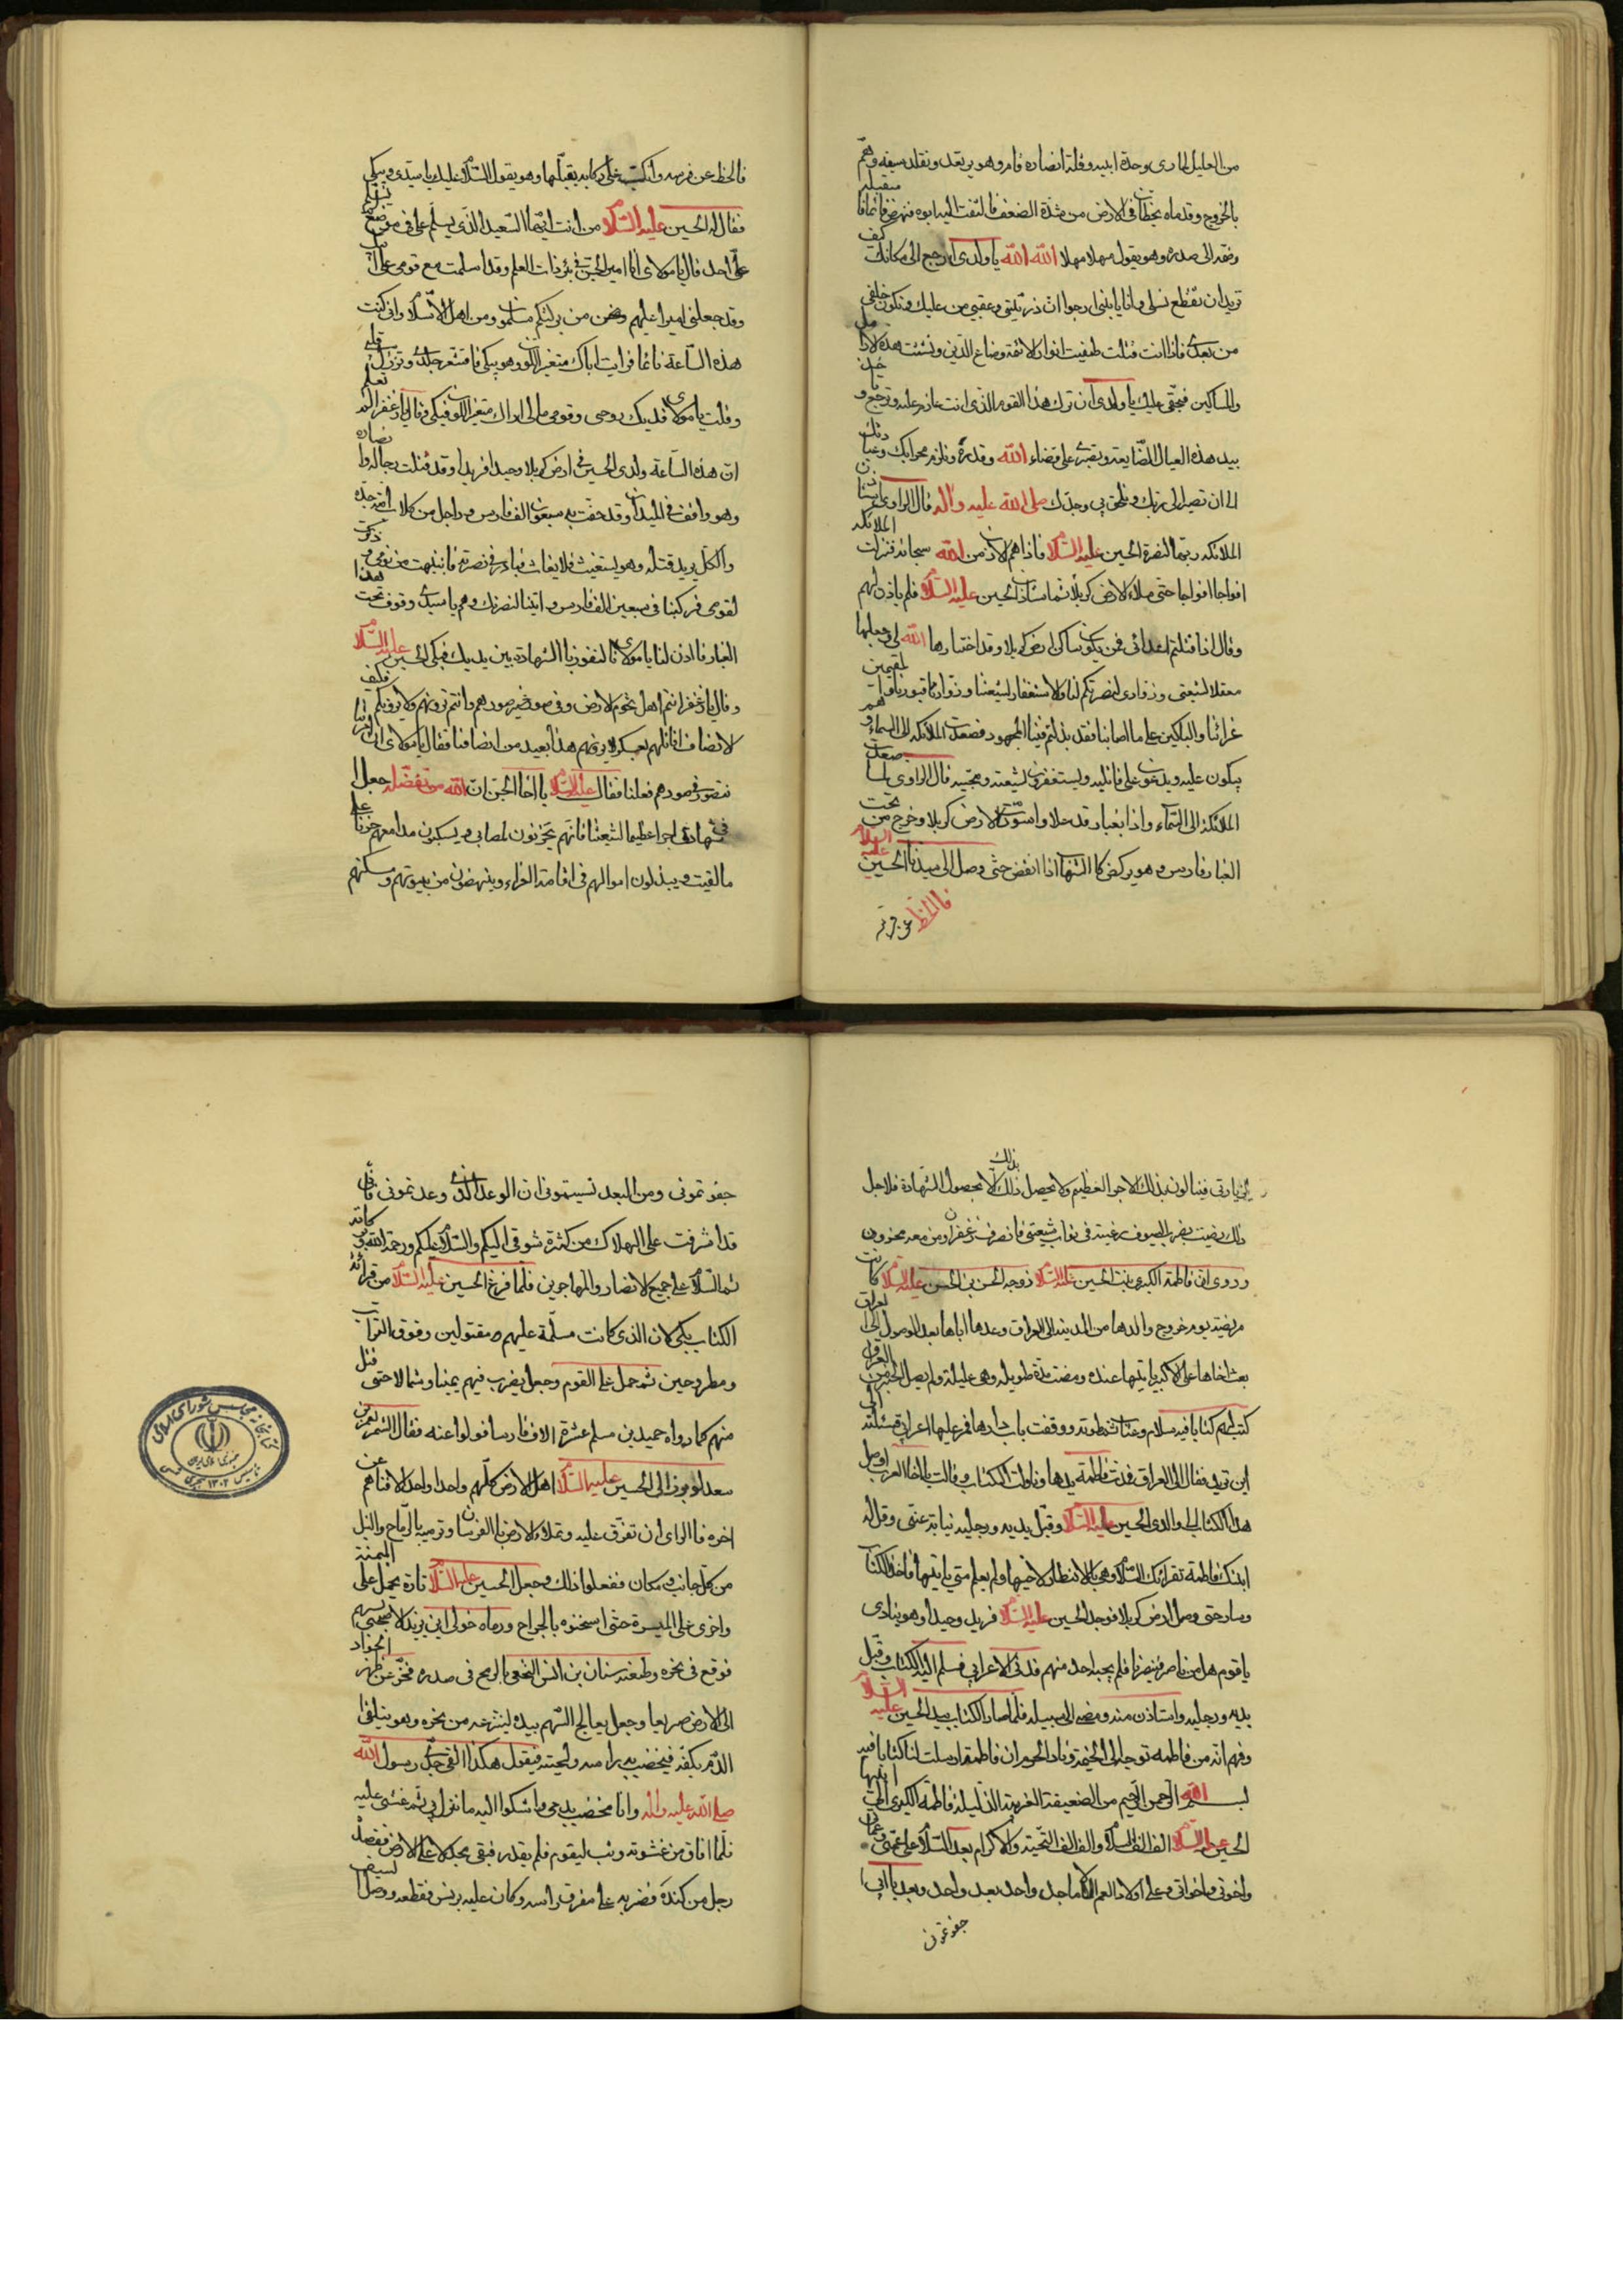 من العليل لما رى وحدة ابيه وقلة انصاره قام وهو يرتعد وتقلد سيفه وهمّ
بالخروج وقدماه يخطان فى الارض من شدة الضعف فالتفت اليه ابوه فنهض قائما فاستقبله
وضمه الى صدره وهو يقول مهلا مهلا الله الله يا ولدى ارجع الى مكانك كيف
تريد ان تقطع نسلى وانا يا بنى ارجوا انّ ذريتى وعقبى من عليك وتكون خلفى
من بعدى فاذا انت قتلت طفيت انوار الائمة وضاع الدين وتشتت هذه الارامل
والمساكين فبحقى عليك يا ولدى ان ترك هذا القوم الذى انت عازم عليه وترجع و
بيد هذه العيال الضايعة وتصبر على قضاء الله وقدره وتلزم محرابك وعبادتك
الى ان تصير الى ربك وتلحق بى وجدك صلى الله عليه واله قال الراوى
الملائكة ربها لنصرة الحسين عليه السلام فاذا هم الاذن من الله سبحانه فنزلت الملائكة
افواجا افواجا حتى ملاء الارض كربلا ثم استاذن الحسين عليه السلام فلم ياذن لهم
وقال اذا قتلتم اعدائى فمن يكون ساكن ارض كربلا وقد اختارها الله لى وجعلها
معقلا لشيعتى وزوارى لنصرتكم لنا ولاستغفار لشيعتنا وزوارنا قبورنا
عزائنا والباكين على ما اصابنا فقد بذلتم فينا المجهود فصعدت الملائكة الى السماء وهم
يبكون عليه ويدعون على قاتليه ويستغفرون لشيعته ومحبيه قال الراوى لما صعدت
الملئكة الى السماء واذا بغبار قد علا واسودّت الارض كربلا وخرج من تحت
الغبار فارس وهو يركض كالشهاب اذا انقض حتى وصل الى ميدان الحسين عليه السلام
فالحظ عن فرسه
فالحظ عن فرسه وانكب على ركابه يقبلها وهو يقول السلام عليك يا سيدى ويبكى
فقال له الحسين عليه السلام من انت ايها السعيد الذى يسلم على فى موضع
علىّ احد قال يا مولاى انا امير الجن فى بئر ذات العلم وقد اسلمت مع قومى على
وقد جعلنى اميرا عليهم ونحن من بركتكم مسلمون ومن اهل الاسلام وانى كنت
هذه الساعة نائما فرايت اباك متغير اللون وهو يبكى فاقشعر جلدى وتزلزل
وقلت يا مولاى فديك روحى وقومى مالى اراك متغير اللون فبكى وقال يا زعفر الم تعلم
ان هذه الساعة ولدى الحسين فى ارض كربلا وحيدا فريدا وقد قتلت رجاله وانصاره
وهو واقف فى الميدان وقد حفت به سبعون الف فارس وراجل من كلاب امة جدّه
والكل يريد قتله وهو يستغيث فلا يغاث فبادر فى نصرته فانتبهت من نومى
لقومى فركبنا فى سبعين الف فارس واتينا لنصرتك وهم يا سيدى وقوف تحت هذا
الغبار فاذن لنا يا مولاى لنفوز بالشهادة بين يديك فبكى الحسين عليه السلام
وقال يا زعفر انتم اهل تخوم الارض وفى صور غير صورهم وانتم ترونهم ولا يرونكم فكيف
الانصاف اقاتلهم بعسكر لا يرونهم هذا بعيد من انصافنا فقال يا مولاى ان امرتنا
نتصور فى صورهم فعلنا فقال عليه السلام يا اخا الجن ان الله من تفضله جعل
فى شهادتى اجرا عظيما لشيعتنا فانهم يحزنون لمصابى ويسكبون مدامعهم حزنا على
ما لقيت ويبذلون اموالهم فى اقامة العزاء وينهضون من بيوتهم ومسكنهم
لزيارتى فينالون بذلك الاجر العظيم ولا يحصل ذلك الا بحصول الشهادة فلاجل
ذلك رضيت بضرب السيوف رغبة فى ثواب شيعتى فانصرف زعفر ومن معه محزون
وروى انّ فاطمة الكبرى بنت الحسين عليه السلام زوجة الحسن بن الحسن عليه السلام كانت
مريضة يوم خروج والدها من المدينة الى العراق وعدها اباها بعد الوصول الى العراق
بعث اخاها على الاكبر ياتيها عنده ومضت مدة طويلة وهى عليلة ولم يصل الخبر من العراق
كتبت لهم كتابا فيه سلام وعتاب ثم طوته ووقفت باب دارها فمرّ عليها اعرابى فسئلته الى
اين تريد فقال الى العراق فمدت فاطمة يدها وناولت الكتاب وقالت يا اخا العرب اوصل
هذا الكتاب الى والدى الحسين عليه السلام وقبل يديه ورجليه نيابة عنى وقل له
ابنتك فاطمة تقرائك السلام وهى بالانتظار لاخيها ولم يعلم متى ياتيها فاخذ الكتاب
وسار حتى وصل ارض كربلا فوجد الحسين عليه السلام فريد وحيدا وهو ينادى
يا قوم هل من ناصر ينصرنا فلم يجبه احد منهم فدنى الاعرابى فسلم اليه الكتاب وقبّل
يديه ورجليه واستاذن منه ومضى الى سبيله فلما صار الكتاب بيد الحسين عليه السلام
وفهم انّه من فاطمة توجه الى الخيمة ونادى الحرم ان فاطمة ارسلت لنا كتابا فيه
بسم الله الرحمن الرحيم من الضعيفة الغريبة الذليلة فاطمة الكبرى الى ابيها
الحسين عليه السلام الف الف السلام والف الف التحية والاكرام بعد السلام على عمتى وعماتى
واخوتى واخواتى وعلى اولاد العم الاماجد واحد بعد واحد وبعد يا ابى
جفوتمونى
جفوتمونى ومن البعد نسيتمونى ان الوعد الذى وعدتمونى فانى
قد اشرفت على الهلاك من كثرة شوقى اليكم والسلام عليكم ورحمة الله وبركاته
ثم السلام على جميع الانصار والمهاجرين فلما فرغ الحسين عليه السلام من قرائة
الكتاب بكى لان الذى كانت مسلمة عليهم مقتولين وفوق التراب
ومطروحين ثم حمل على القوم وجعل يضرب فيهم يمينا وشمالا حتى قتل
منهم كما رواه حميد بن مسلم عشرة الاف فارسا فولوا عنه فقال الشمر لعمر بن
سعد لو برز الى الحسين عليه السلام اهل الارض كلهم واحدا واحدا لافناهم عن
اخره فالراى ان تفرق عليه وتملاء الارض بالفرسان وترميه بالرماح والنبل
من كل جانب ومكان ففعلوا ذلك وجعل الحسين عليه السلام تارة يحمل على الميمنة
واخرى على الميسرة حتى اسخنوه بالجراح ورماه خولى ابن يزيد الاصبحى بسهم
فوقع فى نحره وطعنه سنان بن انس النخعى بالرمح فى صدره فخرّ عن ظهر الجواد
الى الارض صريعا وجعل يعالج السهم بيده لينتزعه من نحره وهو يتلقى
الدم بكفه فيخضب به راسه ولحيته فيقول هكذا القى جدى رسول الله
صلى الله عليه واله وانا مخضب بدمى واشكوا اليه ما نزل بى ثم غشى عليه
فلما افاق من غشوته وثب ليقوم فلم يقدر فبقى مجدلا على الارض فقصده
رجل من كندة فضربه على مفرق راسه وكان عليه برنس فقطعه ووصل السيف
كتابخانه مجلس شوراى اسلامى
جمهورى اسلامى ايران
تاسيس ١٣٠٢ هجرى شمسى